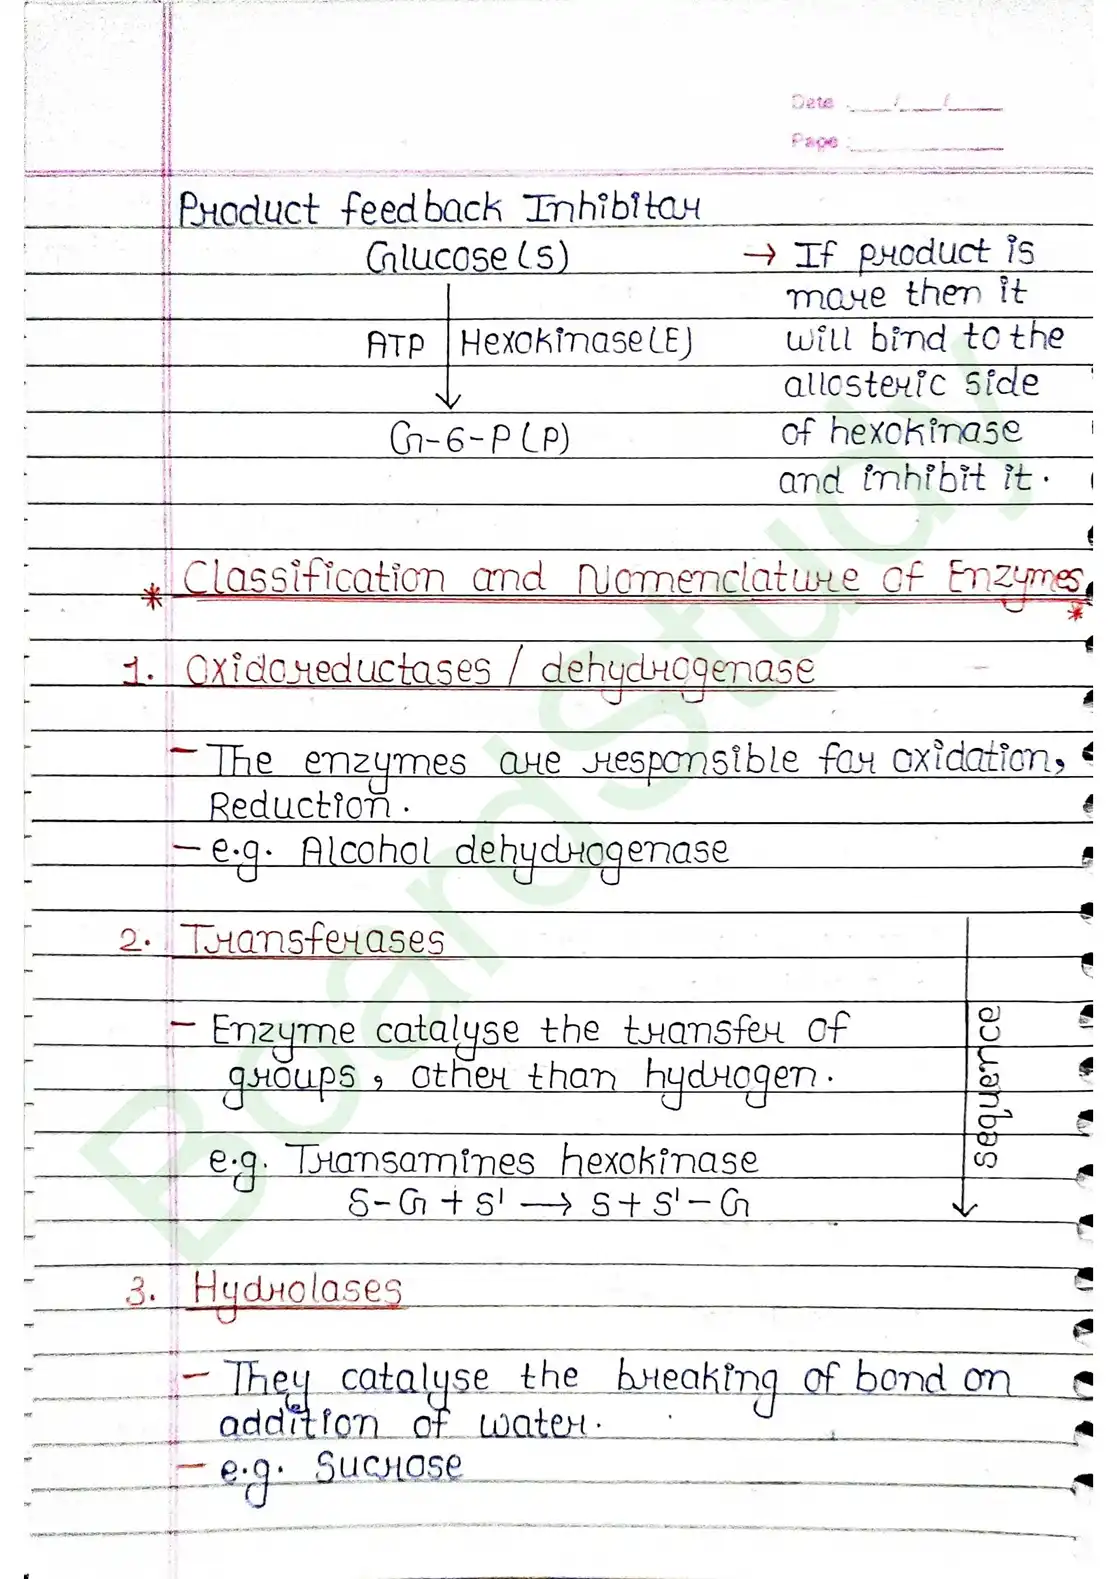 Date
Page
Product feedback Inhibitor
Glucose (S)
ATP Hexokinase (E)
G-6-P (P)
→ If product is
more then it
will bind to the
allosteric side
of hexokinase
and inhibit it.
* Classification and Nomenclature of Enzymes *
1. Oxidoreductases / dehydrogenase
- The enzymes are responsible for oxidation,
Reduction.
- e.g. Alcohol dehydrogenase
2. Transferases
- Enzyme catalyse the transfer of
groups, other than hydrogen.
e.g. Transamines hexokinase
S-G + S' → S + S'-G
sequence
3. Hydrolases
- They catalyse the breaking of bond on
addition of water.
- e.g. Sucrose
BoardStudy